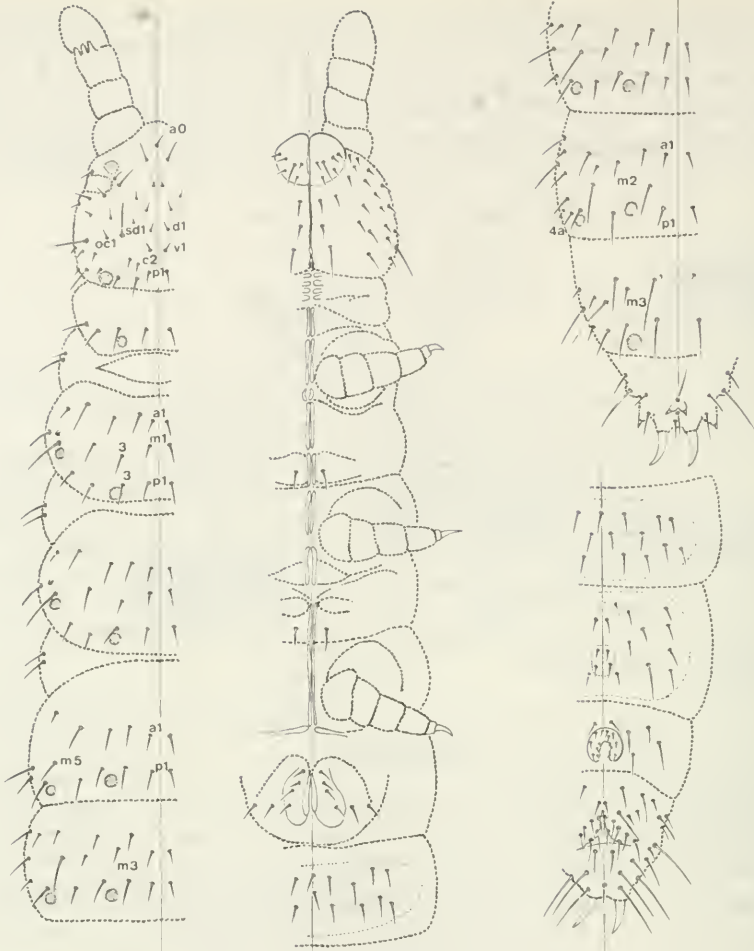 a0
sd1 d1
oc1 v1
c2
p1
a1
m1
3
3
p1
a1
m5 p1
m3
a1
m2
4a p1
m3